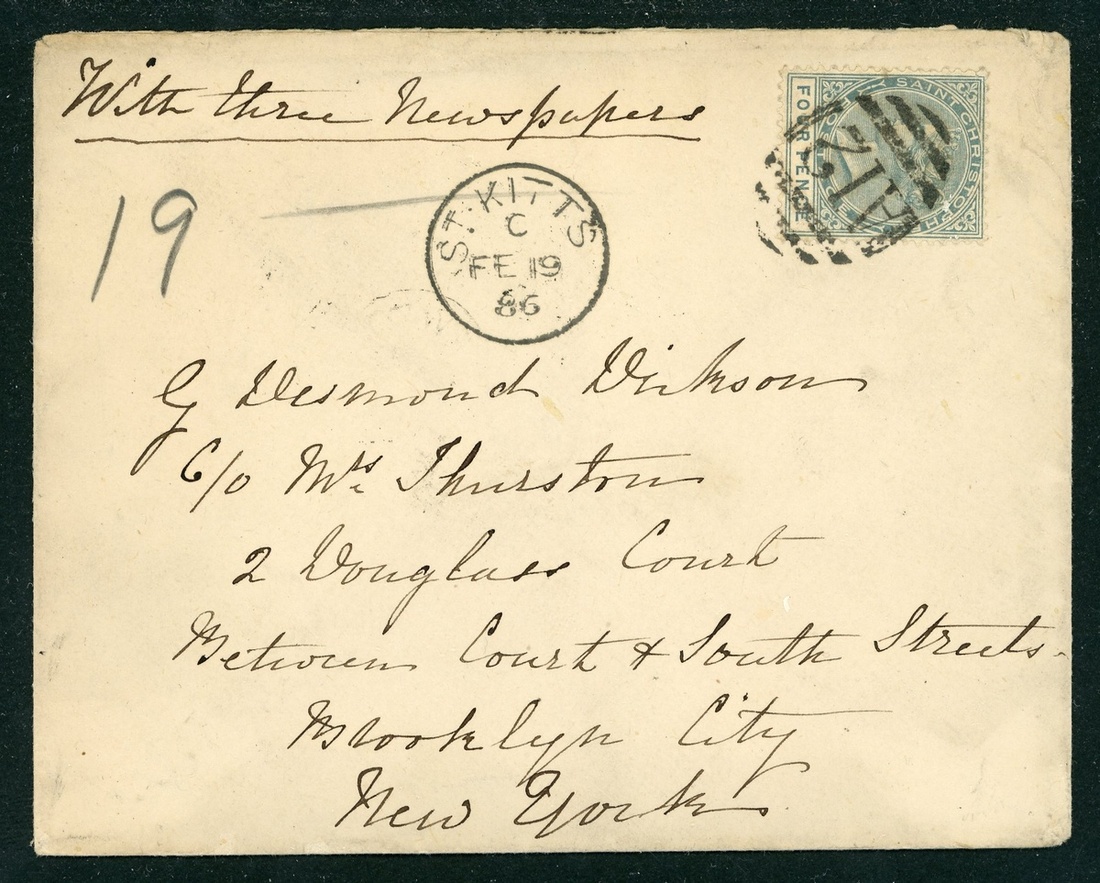 With three Newspapers
19
ST. KITTS
C
FE 19
86
FOUR PENCE
SAINT CHRISTOPHER
A12
G Desmond Dickson
C/o Mrs. Thurston
2 Douglass Court
Between Court & South Streets.
Brooklyn City
New York